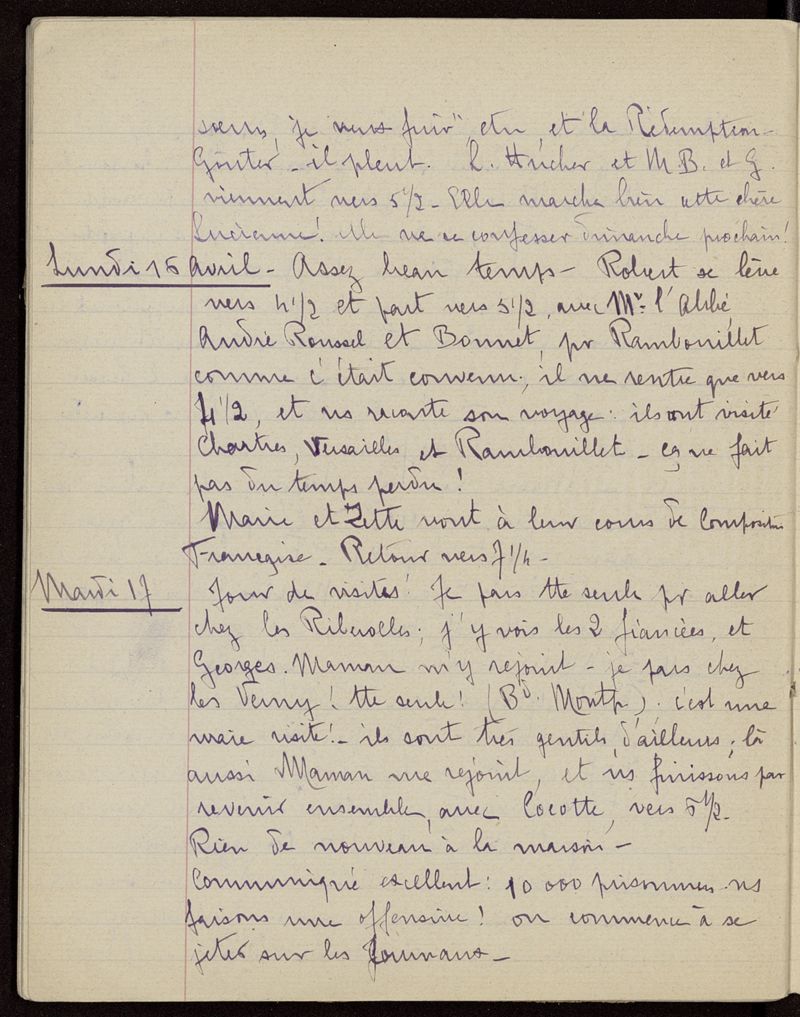 sœurs, je veux fuir", etc, et la Rédemption -
Goûter - il pleut. L. Hucher et M B. et G.
viennent vers 5 1/2 - Elle marche bien cette chère
Lucienne! elle va se confesser dimanche prochain!
Lundi 16 avril - Assez beau temps - Robert se lève
vers 4 1/2 et part vers 5 1/2, avec Mr. l'Abbé,
André Roussel et Bonnet, pr Rambouillet
comme c'était convenu; il ne rentre que vers
7 1/2, et ns raconte son voyage: ils ont visité
Chartres, Versailles et Rambouillet - ça ne fait
pas du temps perdu!
Marie et Zette vont à leur cours de Composition
Française - Retour vers 7 1/4 -
Mardi 17 Jour de visites! Je pars tte seule pr aller
chez les Riberolles; j'y vois les 2 fiancées, et
Georges. Maman m'y rejoint - je pars chez
les Verny! tte seule! (Bd. Montp.). c'est une
vraie visite! - ils sont très gentils, d'ailleurs; là
aussi Maman me rejoint, et ns finissons par
revenir ensemble, avec Cocotte, vers 5 1/2 -
Rien de nouveau à la maison -
Communiqué excellent: 10 000 prisonniers. ns
faisons une offensive! on commence à se
jeter sur les Journaux -